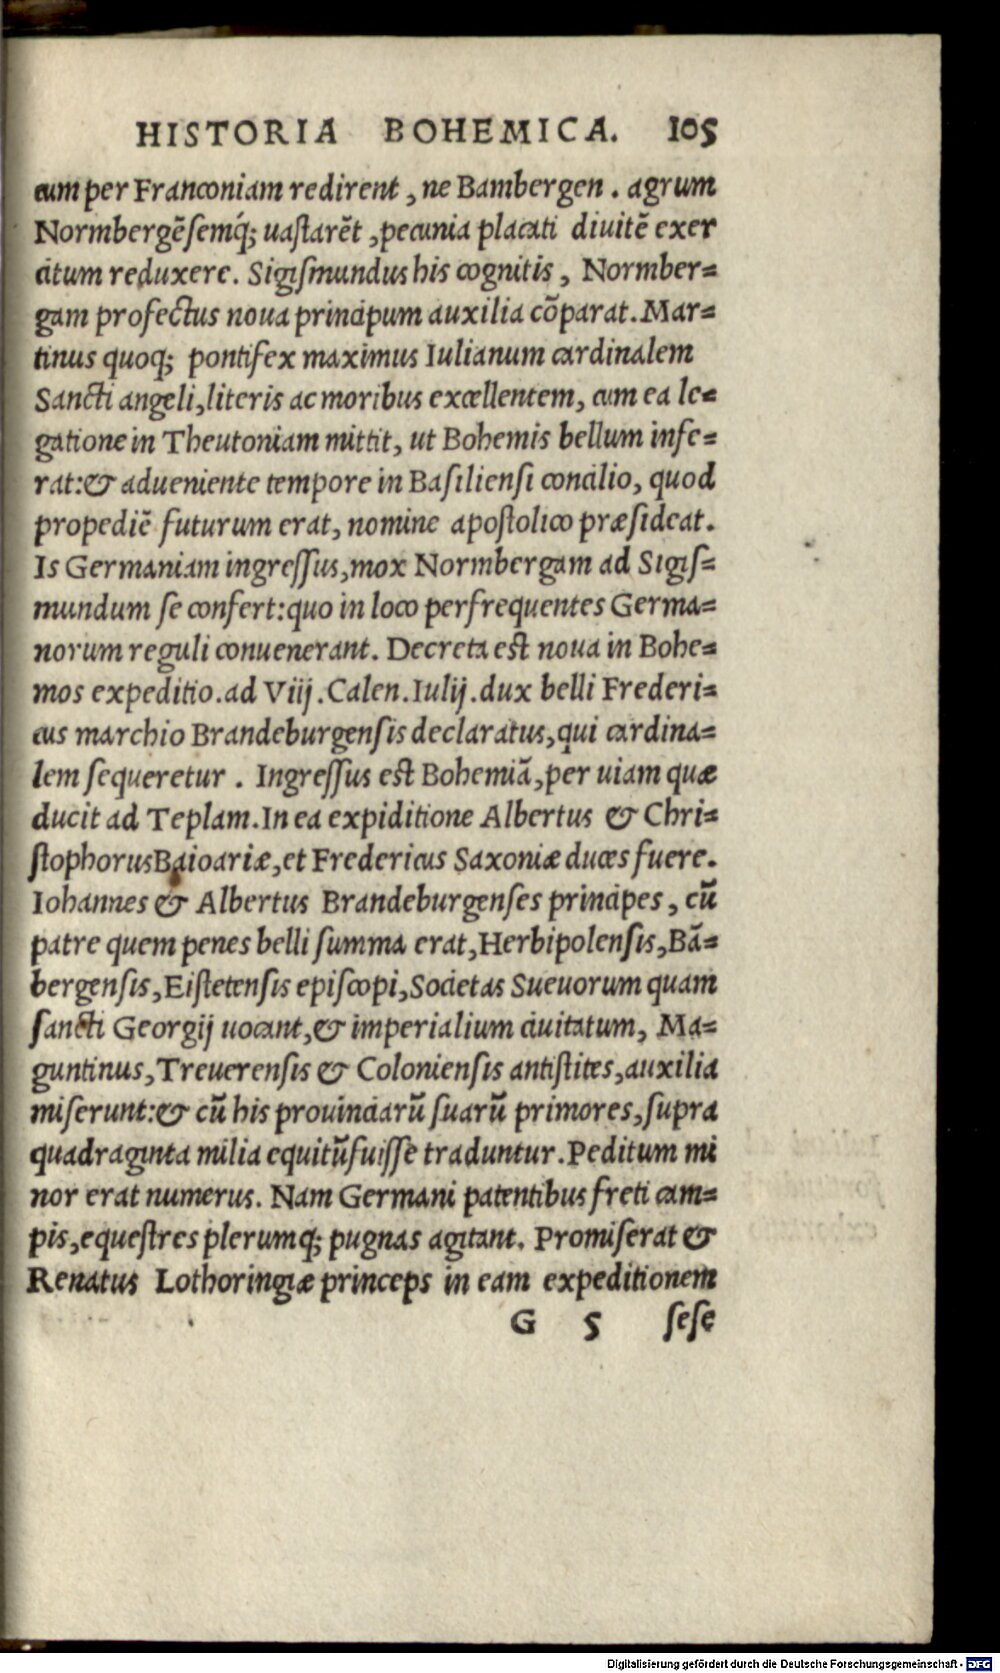 HISTORIA BOHEMICA. 105
cum per Franconiam redirent, ne Bambergen. agrum
Normbergēsemq́; uaſtarēt, pecunia placati diuitē exer
citum reduxere. Sigiſmundus his cognitis, Normber=
gam profectus noua principum auxilia cōparat. Mar=
tinus quoq; pontifex maximus Iulianum cardinalem
Sancti angeli, literis ac moribus excellentem, cum ea le=
gatione in Theutoniam mittit, ut Bohemis bellum infe=
rat: & adueniente tempore in Baſilienſi concilio, quod
propediē futurum erat, nomine apoſtolico præſideat.
Is Germaniam ingreſſus, mox Normbergam ad Sigiſ=
mundum ſe confert: quo in loco perfrequentes Germa=
norum reguli conuenerant. Decreta eſt noua in Bohe=
mos expeditio. ad Viij. Calen. Iulij. dux belli Frederi=
cus marchio Brandeburgenſis declaratus, qui cardina=
lem ſequeretur. Ingreſſus eſt Bohemiā, per uiam quæ
ducit ad Teplam. In ea expiditione Albertus & Chri=
ſtophorus Baioariæ, et Fredericus Saxoniæ duces fuere.
Iohannes & Albertus Brandeburgenſes principes, cū
patre quem penes belli ſumma erat, Herbipolenſis, Bā=
bergenſis, Eiſtetenſis epiſcopi, Societas Sueuorum quam
ſancti Georgij uocant, & imperialium ciuitatum, Ma=
guntinus, Treuerenſis & Colonienſis antiſtites, auxilia
miſerunt: & cū his prouinciarū ſuarū primores, ſupra
quadraginta milia equitū fuiſſe traduntur. Peditum mi
nor erat numerus. Nam Germani patentibus freti cam=
pis, equeſtres plerumq; pugnas agitant. Promiſerat &
Renatus Lothoringiæ princeps in eam expeditionem
G 5 ſeſe
Digitalisierung gefördert durch die Deutsche Forschungsgemeinschaft - DFG